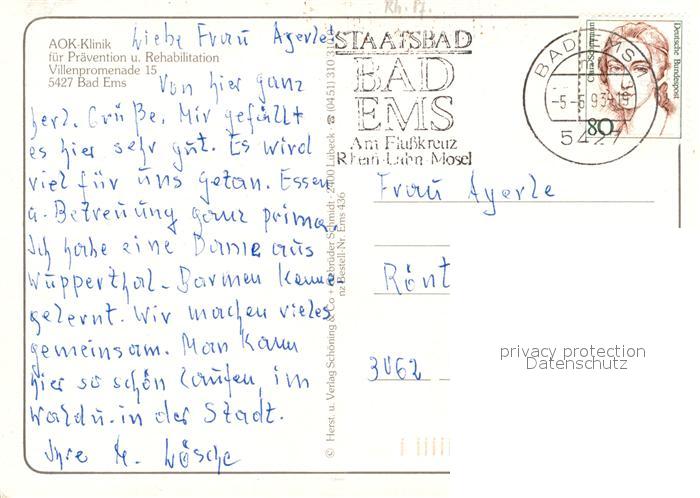 Rh. Pf.
Liebe Frau Ayerle!
AOK-Klinik
für Prävention u. Rehabilitation
Villenpromenade 15
5427 Bad Ems
Von hier ganz
herz. Grüße. Mir gefällt
es hier sehr gut. Es wird
viel für uns getan. Essen
u. Betreuung ganz prima.
Ich habe eine Dame aus
Wupperthal-Barmen kenne
gelernt. Wir machen vieles
gemeinsam. Man kann
hier so schön laufen, im
Wald u. in der Stadt.
Ihre M. Lösche
© Herst. u. Verlag Schöning & Co + Gebrüder Schmidt · 2400 Lübeck ☎ (0451) 310 310
nz Bestell-Nr. Ems 436
STAATSBAD
BAD
EMS
Am Flußkreuz
Rhein-Lahn-Mosel
BAD EMS
-5.-6.93-19
5427
Deutsche Bundespost
Clara Schumann
80
Frau Ayerle
Rönt
3062
privacy protection
Datenschutz